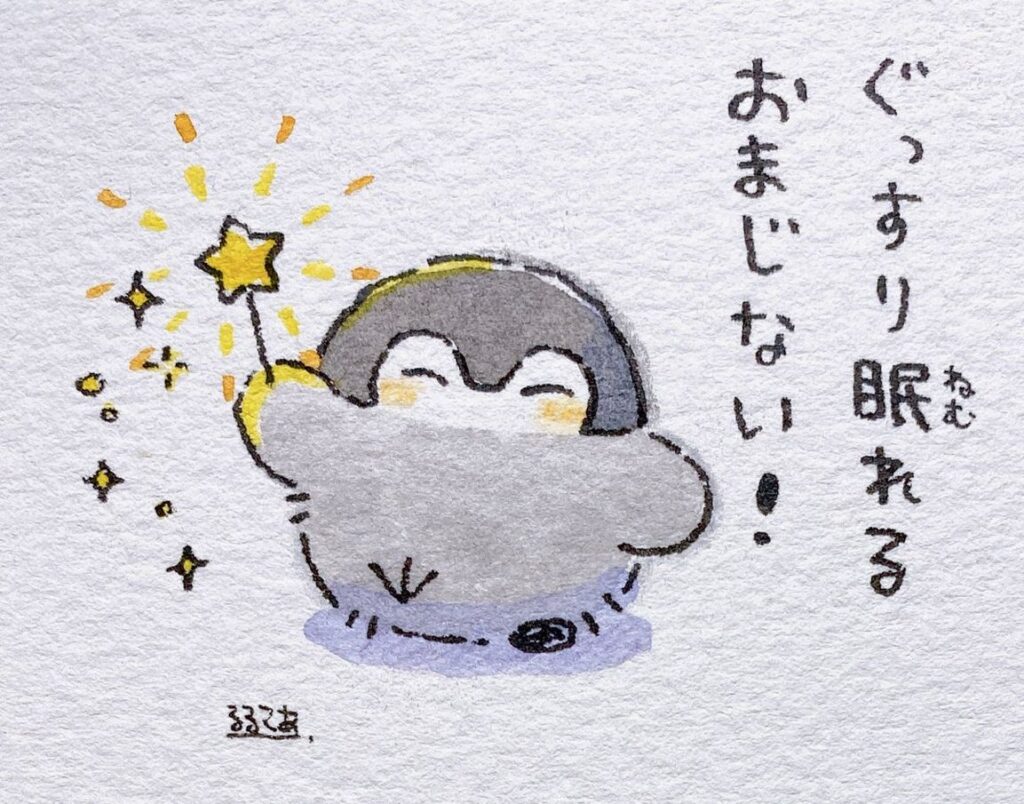 ぐっすり眠れる
ねむ
おまじない!
るるてあ